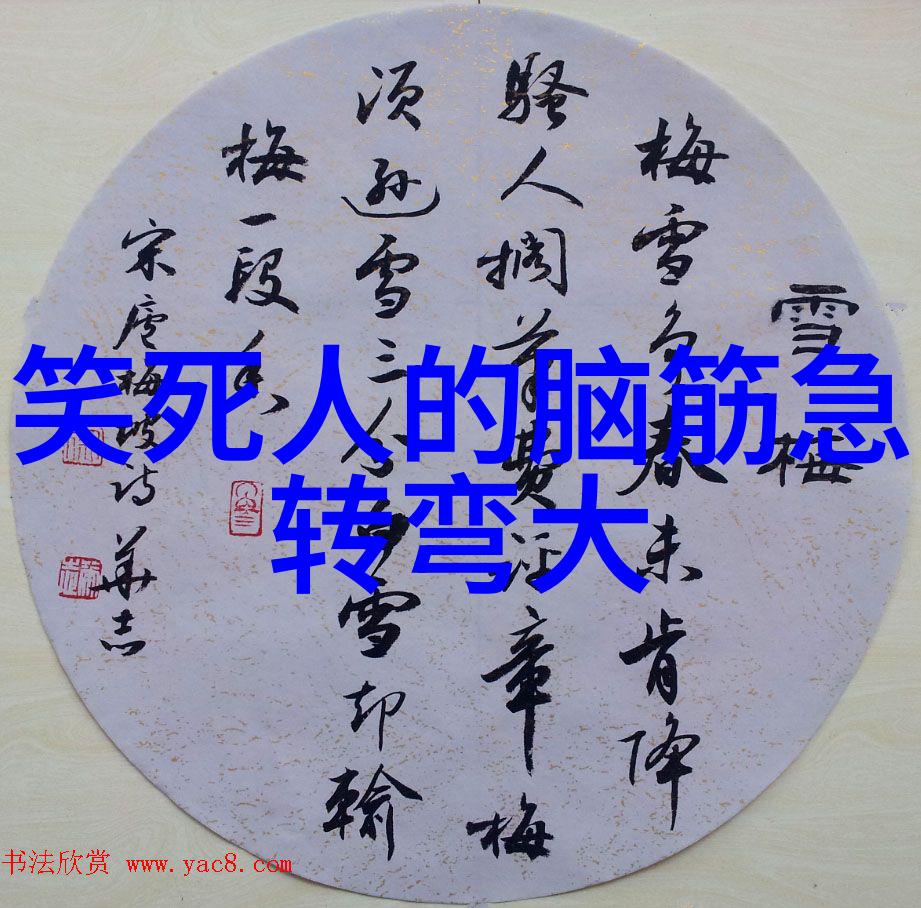 笑死人的脑筋急
转弯大
雪梅
梅雪争春未肯降
騷人擱筆費評章梅
須遜雪三分白雪却輸
梅一段香
宋盧梅坡詩 華志
书法欣赏 www.yac8.com